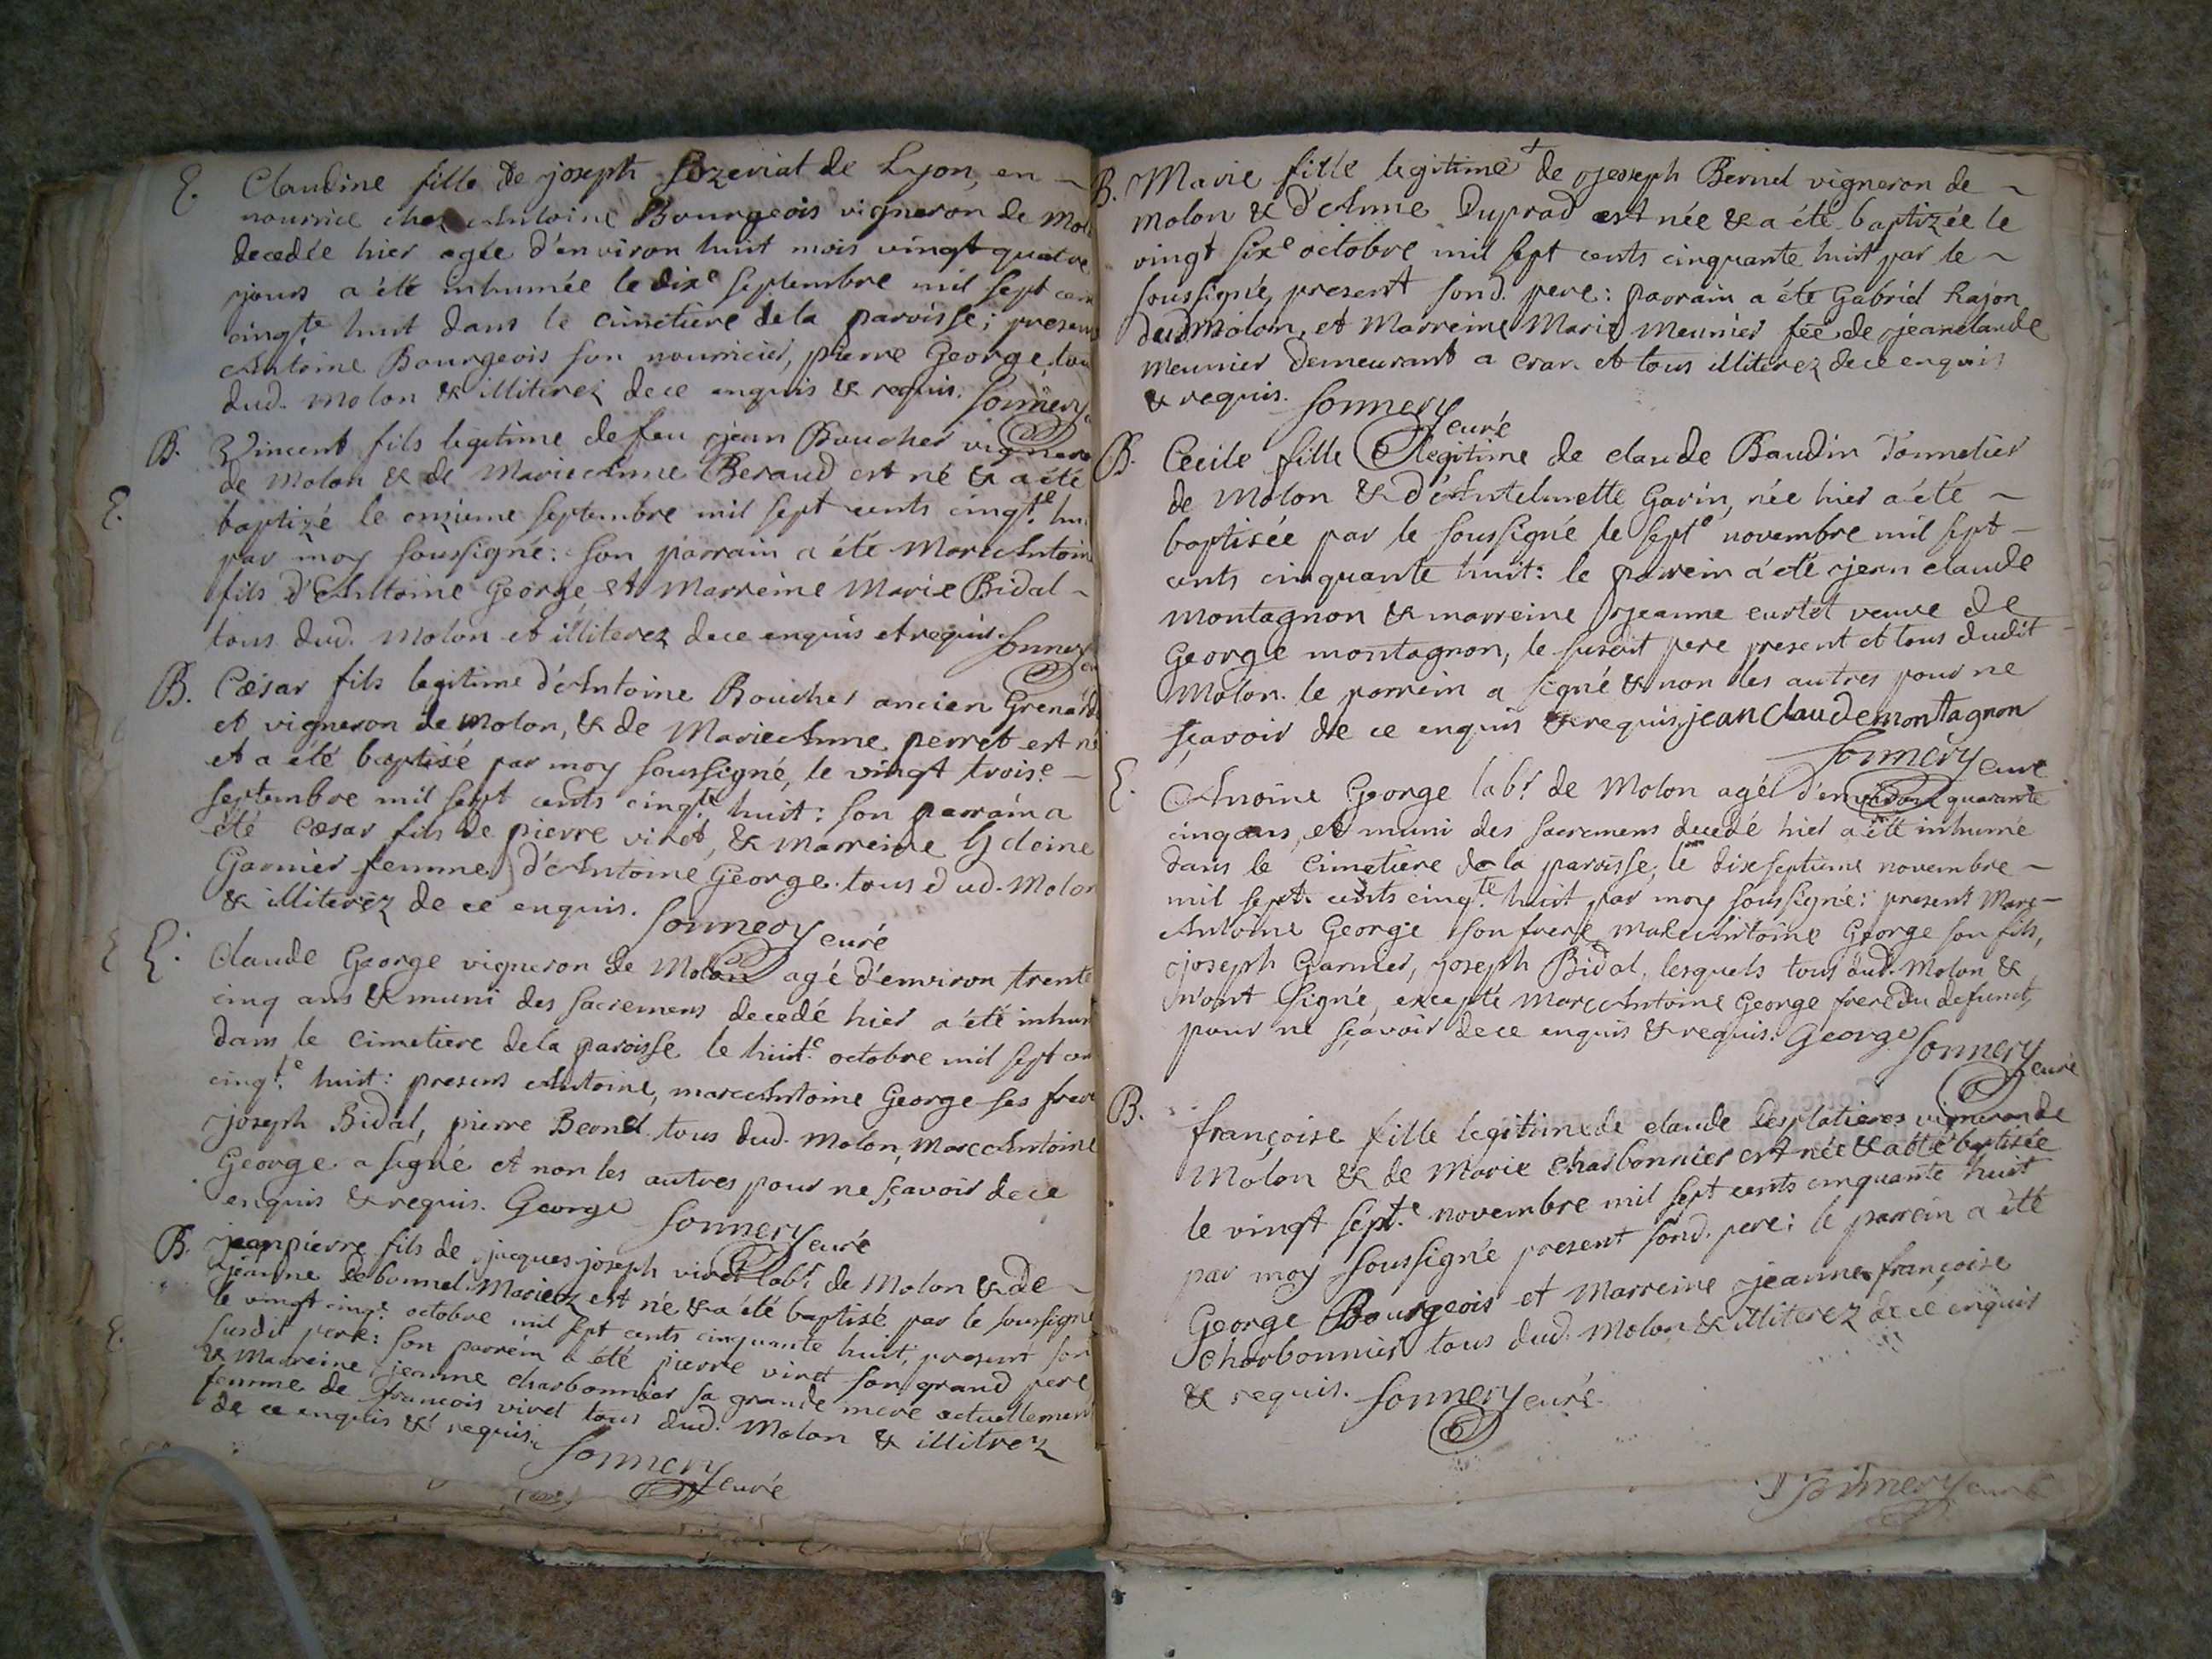 E. Claudine fille de joseph de Lyon, en
nourrice chez Antoine Bourgeois vigneron de Mol
decedée hier agée d'environ huit mois vingt quatre
jours a été inhumée le dixe septembre mil sept cen
cinqte huit dans le cimetiere de la paroisse; presens
Antoine Bourgeois son nourricier, pierre George, tou
dud. molon & illiterez de ce enquis & requis. Sonnery
B. Vincent fils legitime de feu jean Boucher vignero
de Molon & de Marie Anne Beraud est né & a été
E. baptizé le onzieme septembre mil sept cents cinqte hu
par moy soussigné: son parrain a été Marc Antoin
fils d'Antoine George et Marreine Marie Bidal
tous dud. Molon et illiterez de ce enquis et requis. Sonnery
B. Cæsar fils legitime d'Antoine Boucher ancien Grenad
et vigneron de Molon, & de Marie Anne perret est né
et a été baptisé par moy soussigné, le vingt troise
septembre mil sept cents cinqte huit: son parrain a
été Cæsar fils de pierre viret, & marreine
Garnier femme d'Antoine George. tous dud. Molon
& illiterez de ce enquis. Sonnery curé
E. Claude George vigneron de Molon agé d'environ trente
cinq ans & muni des sacremens decedé hier a été inhum
dans le cimetiere de la paroisse le huite octobre mil sept cen
cinqte huit: presens Antoine, marc Antoine George ses frere
joseph Bidal, pierre Bernel tous dud. Molon, Marc Antoine
George a signé et non les autres pour ne sçavoir de ce
enquis & requis. George Sonnery curé
B. jean pierre fils de jacques joseph viret labr de Molon & de
jeanne est né & a été baptisé par le soussigné
le vingt cinqe octobre mil sept cents cinquante huit, present son
E. susdit pere: son parrein a été pierre viret son grand pere
& Marreine jeanne charbonnier sa grande mere actuellement
femme de françois viret tous dud. Molon & illitrez
de ce enquis & requis. Sonnery curé
B. Marie fille legitime de joseph Bernel vigneron de
molon & d'Anne Duprad est née & a été baptizée le
vingt sixe octobre mil sept cents cinquante huit par le
soussigné, present sond. pere: parrain a été Gabriel Rajon
dud Molon, et Marreine Marie Meunier fée de jean claude
Meunier demeurant a cran et tous illiterez de ce enquis
& requis. Sonnery curé
B. Cecile fille legitime de claude Baudin Tonnelier
de Molon & d'Antelmette Gavin, née hier a été
baptisée par le soussigné le septe novembre mil sept
cents cinquante huit: le parrein a été jean claude
montagnon & marreine jeanne curtet veuve de
George montagnon, le susdit pere present et tous dudit
Molon. le parrein a signé & non les autres pour ne
sçavoir de ce enquis & requis, jean Claude montagnon
Sonnery curé
E. Antoine George labr de Molon agé d'environ quarante
cinq ans, et muni des sacremens decedé hier a été inhumé
dans le Cimetiere de la paroisse, le dix septieme novembre
mil sept cents cinqte huit par moy soussigné: present Marc
Antoine George son frere, marc Antoine George son fils,
joseph Garnier, joseph Bidal, lesquels tous dud. Molon &
n'ont signé, excepté Marc Antoine George frere du defunct,
pour ne sçavoir de ce enquis & requis. George Sonnery
curé
B. françoise fille legitime de claude Desplatieres vigneron de
Molon & de Marie charbonnier est née & a été baptisée
le vingt septe novembre mil sept cents cinquante huit
par moy soussigné present sond. pere: le parrein a été
George Bourgeois et Marreine jeanne françoise
charbonnier tous dud. Molon & illiterez de ce enquis
& requis. Sonnery curé
Sonnery curé